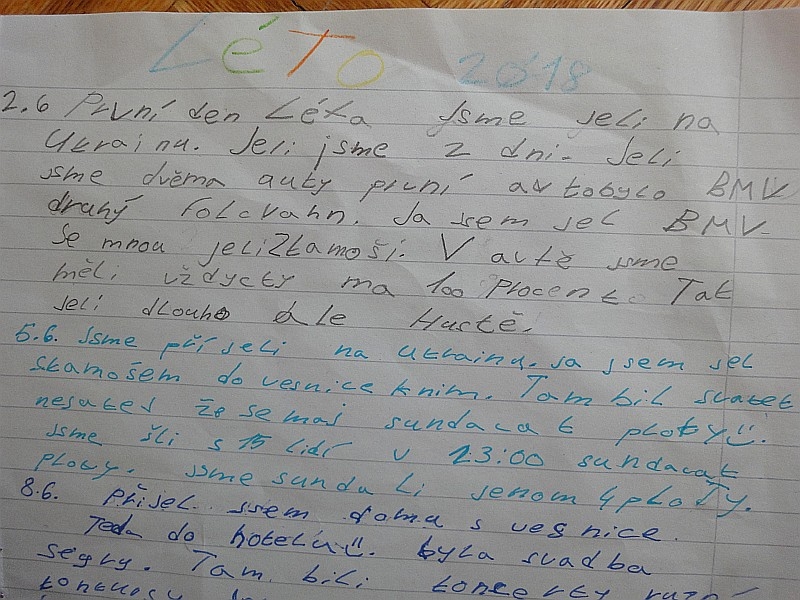 LéTo 2018
2.6 První den Léta jsme jeli na
Ukrainu. Jeli jsme 2 dni. Jeli
jsme dvěma auty první avtobylo BMV
druhý Folcvahn. Ja jsem jel BMV.
Se mnou jeli 2 kamoši. V autě jsme
měli vždycky na 100 Procent. Tak
jeli dlouho ale Hustě.
5.6. Jsme přijeli na Ukrainu. ja jsem jel
skamošem do vesnice knim. Tam bil svatek
nesatej že se maj sundavat ploty.
jsme šli s 15 lidí v 23:00 sundavat
ploty. jsme sundali jenom 4 ploty.
8.6. Přijel jsem doma s vesnice.
Teda do hotelu. byla svadba
segry. Tam bili koncerty ruzní